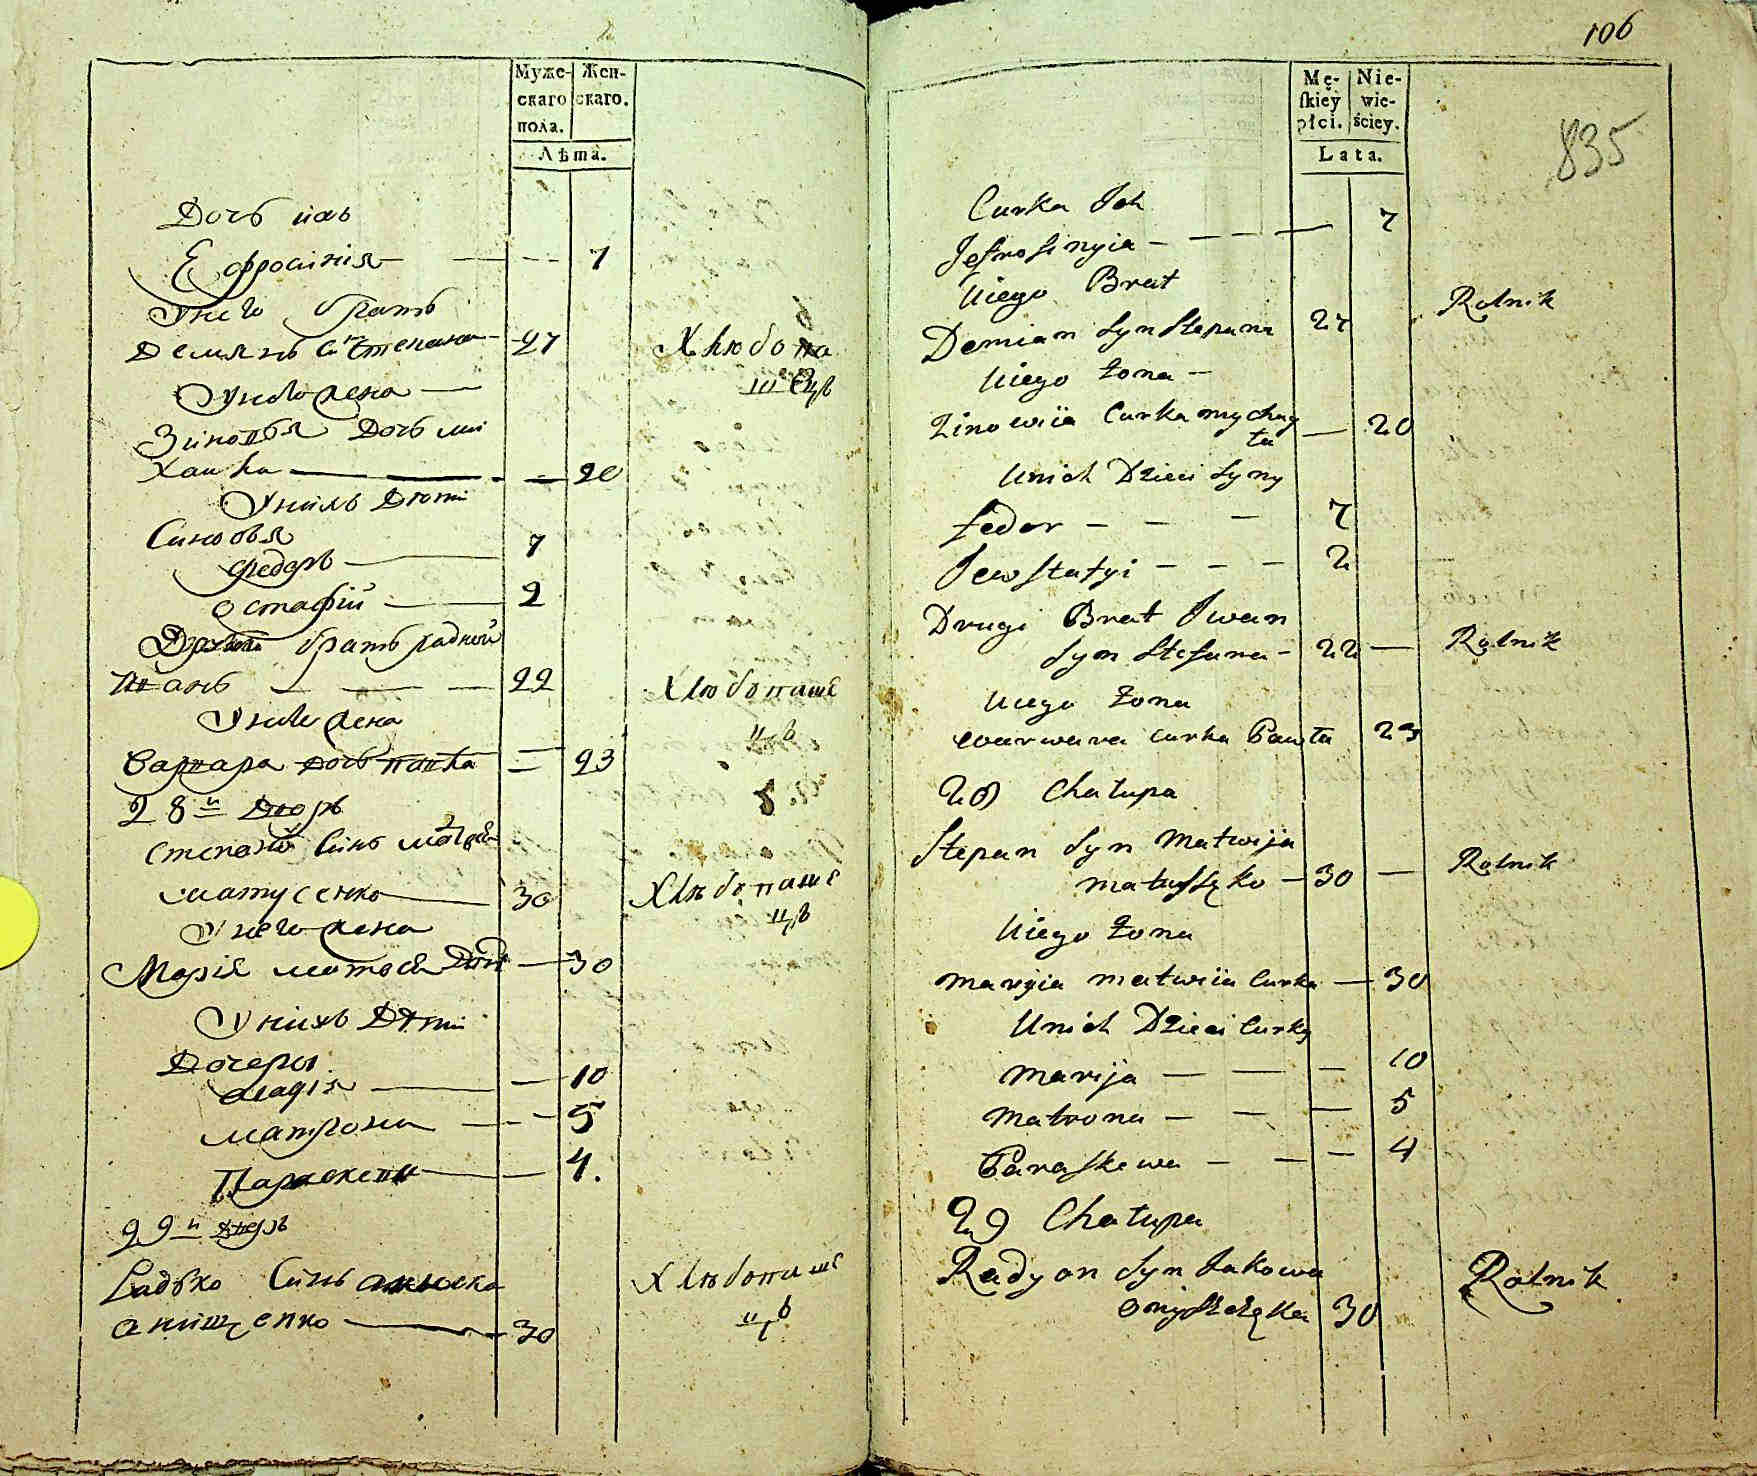 106
835
Муже-
скаго
пола.
Жен-
скаго.
Лѣта.
Дочь ихъ
Ефросинія — — — 7
У него братъ
Демянъ Синъ Степана 27 Хлѣбопа
шецъ
У него жена —
Зиновья Дочь ми
хайла — — 20
У нихъ Дѣти
Синовья
Федоръ — 7
Остафій — 2
Другій братъ радной
Иванъ — — — 22 Хлѣбопаше
цъ
У него жена
Варвара Дочь павла — 23
28й Дворъ
Степанъ Синъ матвея
матусенко — 30 Хлѣбопаше
цъ
У него жена
Марія матвея Дочь — 30
У нихъ Дѣти
Дочеры
Марія — — 10
Матрона — — 5
Параскева — — 4.
29й Дворъ
Радько Синъ
анищенко — 30 Хлѣбопаше
цъ
Mę-
skiey
płci.
Nie-
wie-
ściey.
Lata.
Curka Ich
Jefrosinyia — — — — 7
Uiego Brat
Demian Syn Stepana 27 Rolnik
Uiego Żona —
Zinowiia Curka mychay
ła — 20
Unich Dzieci Syny
Fedor — — — 7
Jewstafyi — — — 2
Drugi Brat Iwan
Syn Stefana — 22 — Rolnik
Uiego Żona
Warwara Curka Pawła 23
28 Chałupa
Stepan Syn Matwija
matusęko — 30 — Rolnik
Uiego Żona
Maryia matwiia Curka — 30
Unich Dzieci Curky
Marija — — — 10
Matrona — — — 5
Paraskewa — — — 4
29 Chałupa
Radyon Syn Jakowa
Onyszczęka 30 Rolnik